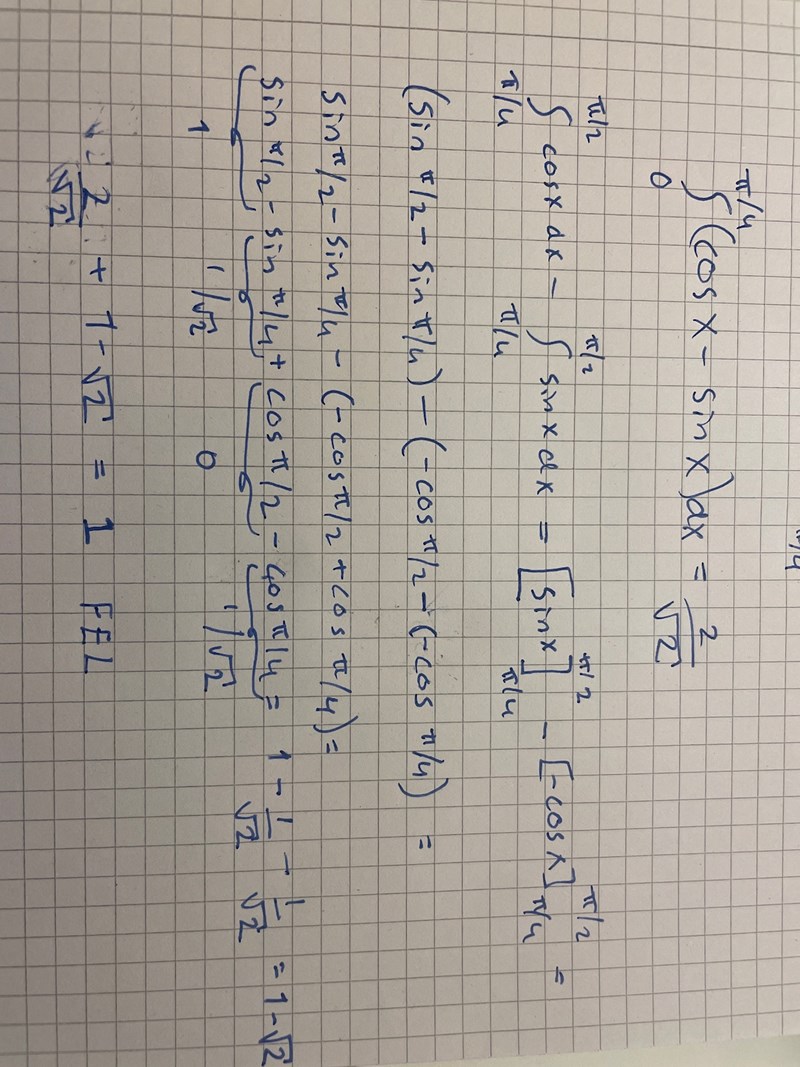 π/4
∫₀^(π/4) (cos x - sin x) dx = 2/√2
∫_(π/4)^(π/2) cosx dx - ∫_(π/4)^(π/2) sinx dx = [sin x]_(π/4)^(π/2) - [-cos x]_(π/4)^(π/2) =
(sin π/2 - sin π/4) - (-cos π/2 - (-cos π/4) =
sin π/2 - sin π/4 - (-cos π/2 + cos π/4) =
sin π/2 - sin π/4 + cos π/2 - cos π/4 = 1 - 1/√2 - 1/√2 = 1-√2
1 1/√2 0 1/√2
2/√2 + 1-√2 = 1 FEL